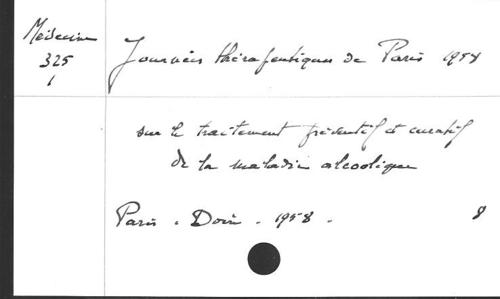 Médecine
325
1
Journées thérapeutiques de Paris 1958
sur le traitement préventif et curatif
de la maladie alcoolique
Paris . Doin . 1958 .
8